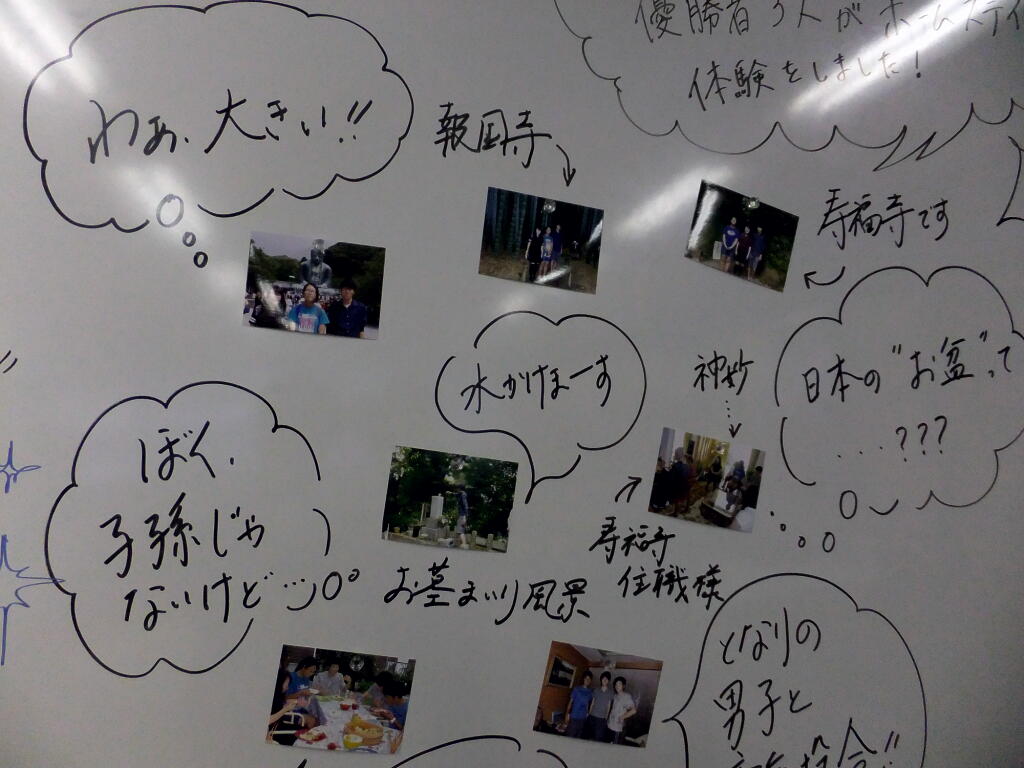 優勝者3人がホームステイ
体験をしました!
わぁ、大きい!!
報国寺
寿福寺です
水かけまーす
神妙
日本の“お盆”って
...???
ぼく、
子孫じゃ
ないけど…
お墓まいり風景
寿福寺
住職様
となりの
男子と
意気投合!!